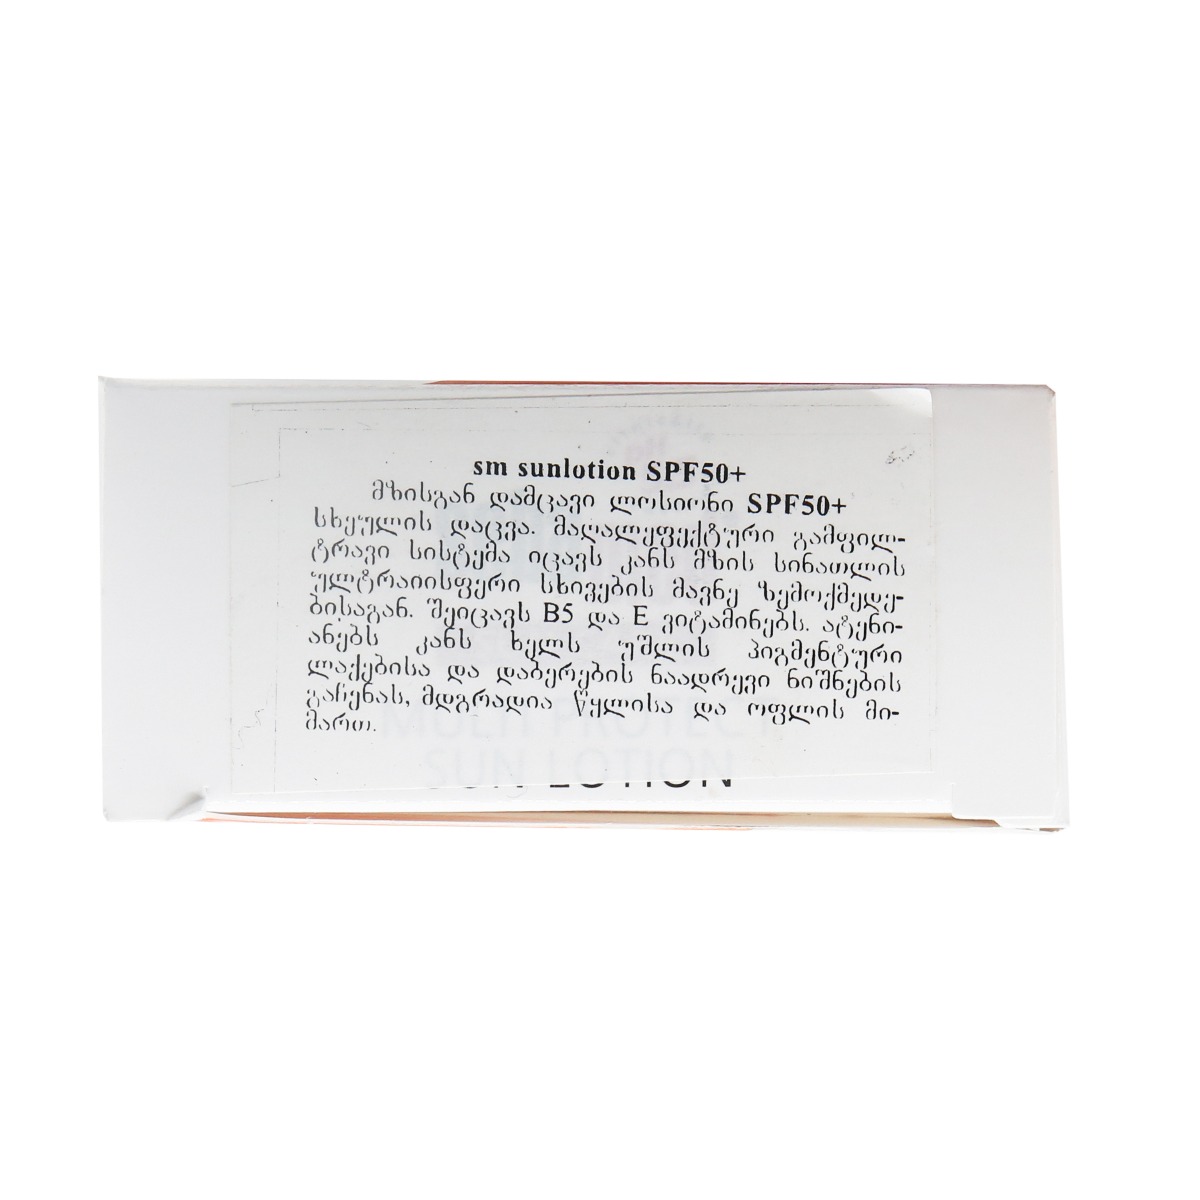 sm sunlotion SPF50+
მზისგან დამცავი ლოსიონი SPF50+
სხეულის დაცვა. მაღალეფექტური გამფილ-
ტრავი სისტემა იცავს კანს მზის სინათლის
ულტრაიისფერი სხივების მავნე ზემოქმედე-
ბისაგან. შეიცავს B5 და E ვიტამინებს. ატენი-
ანებს კანს ხელს უშლის პიგმენტური
ლაქებისა და დაბერების ნაადრევი ნიშნების
გაჩენას, მდგრადია წყლისა და ოფლის მი-
მართ.
MULTI PROTECT
SUN LOTION